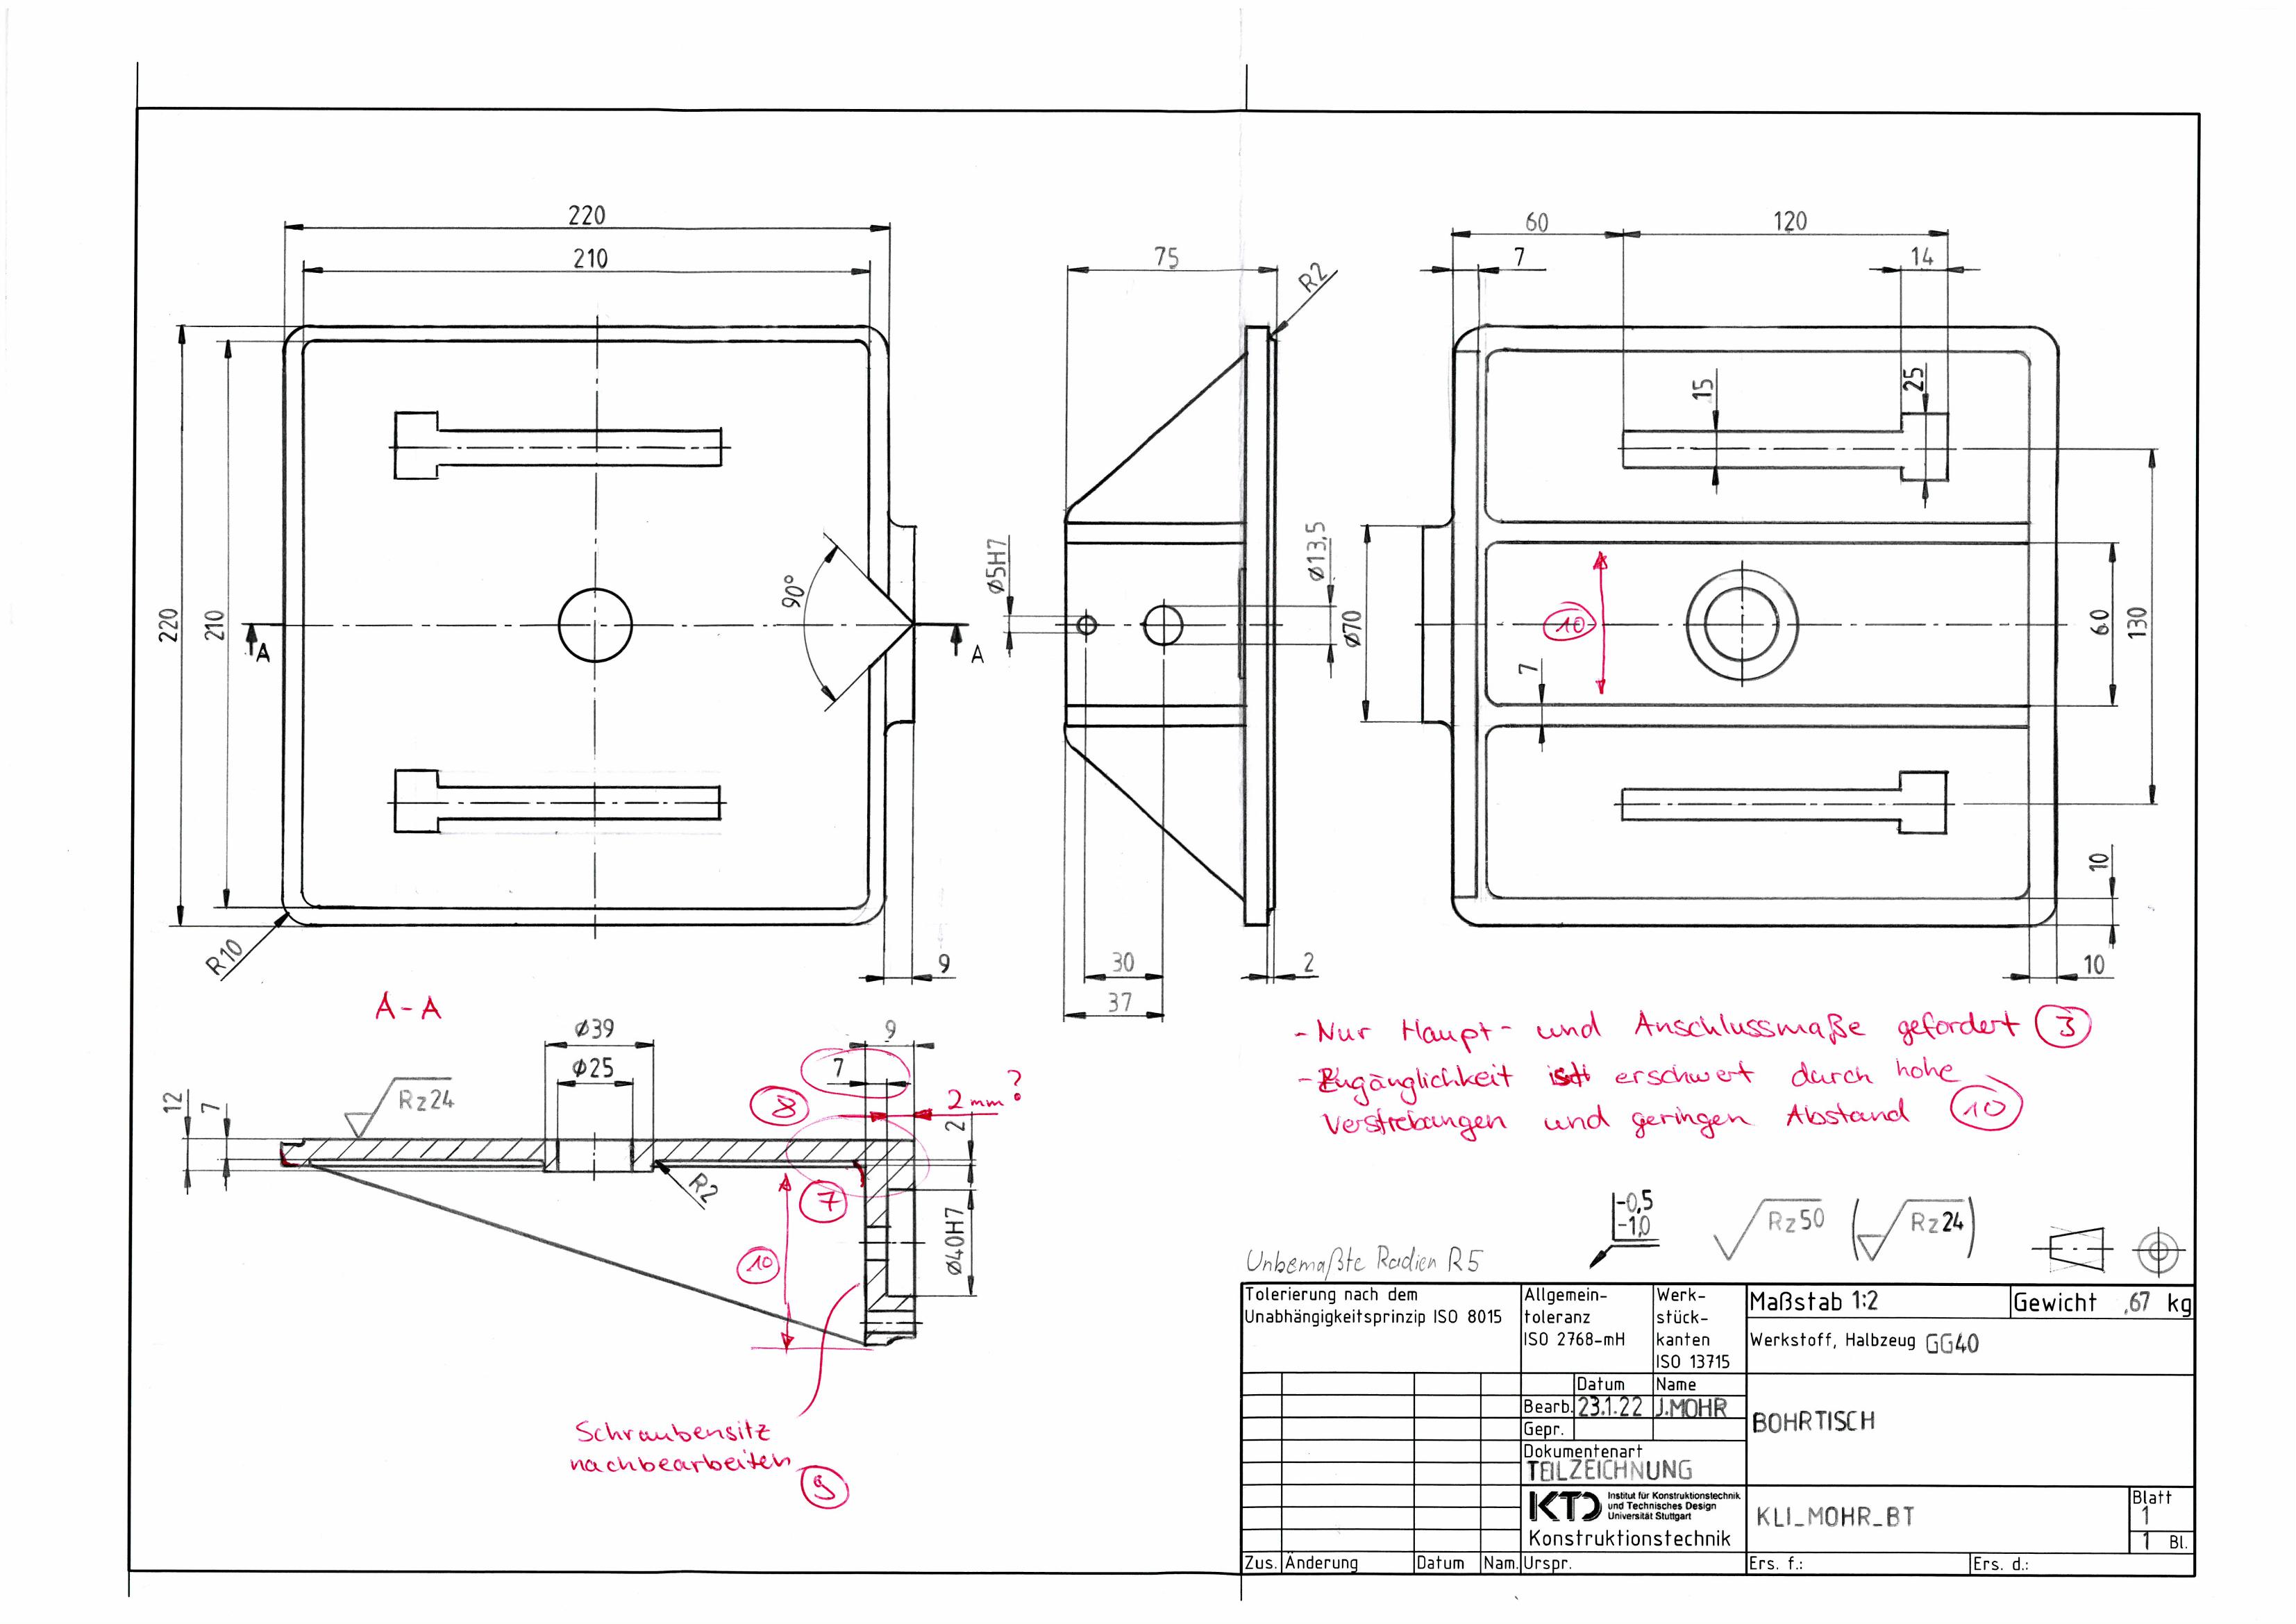 220
210
75
R2
60
120
7
14
15
25
220
210
90°
Ø5H7
Ø13,5
Ø70
10
7
60
130
A
A
R10
9
30
37
2
10
10
A-A
Ø39
Ø25
9
7
12
7
Rz24
8
2mm?
2
R2
7
10
Ø40H7
Schraubensitz
nachbearbeiten
9
- Nur Haupt- und Anschlussmaße gefordert 3
- Zugänglichkeit ist erschwert durch hohe
Verstrebungen und geringen Abstand 10
-0,5
-1,0
Rz50 (Rz24)
Unbemaßte Radien R5
Tolerierung nach dem
Unabhängigkeitsprinzip ISO 8015
Allgemein-
toleranz
ISO 2768-mH
Werk-
stück-
kanten
ISO 13715
Maßstab 1:2
Gewicht ,67 kg
Werkstoff, Halbzeug GG40
Datum Name
Bearb. 23.1.22 J.MOHR
Gepr.
BOHRTISCH
Dokumentenart
TEILZEICHNUNG
KTD Institut für Konstruktionstechnik
und Technisches Design
Universität Stuttgart
Konstruktionstechnik
KLI_MOHR_BT
Blatt
1
1 Bl.
Zus. Änderung Datum Nam. Urspr. Ers. f.: Ers. d.: